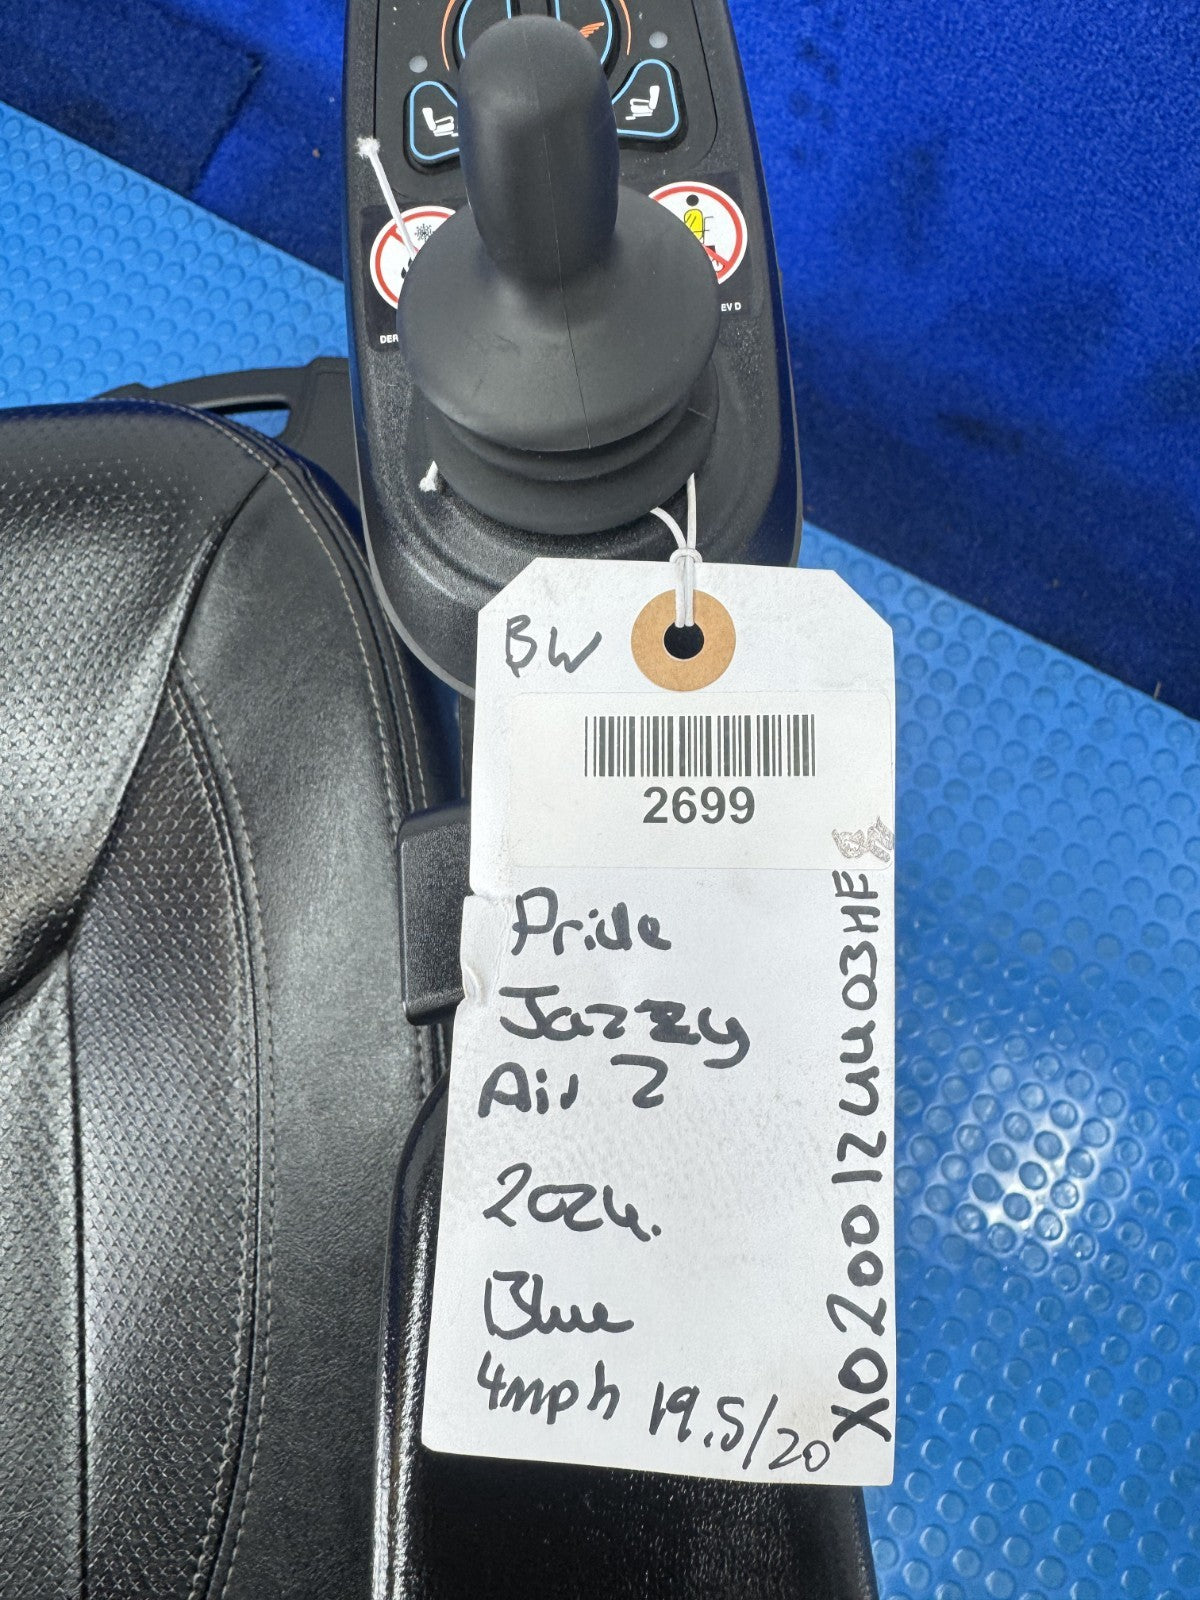 DER
EV D
BW
2699
Pride
Jazzy
Air 2
2024.
Blue
4mph 19.5/20